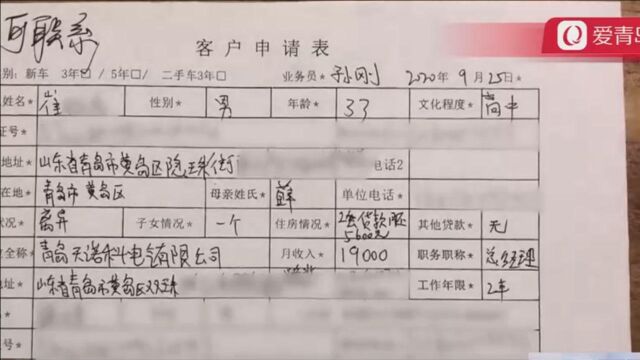 爱青岛
可联系
客户申请表
别:新车 3年□/5年□ 二手车3年□ 业务员* 孙刚 2020年9月25日*
姓名* 崔 性别* 男 年龄* 33 文化程度* 高中
证号*
地址* 山东省青岛市黄岛区隐珠街 电话2
在地* 青岛市黄岛区 母亲姓氏* 薛 单位电话*
状况* 离异 子女情况* 一个 住房情况* 2套贷款 5600元 其他贷款* 无
位全称* 青岛天诺科电气有限公司 月收入* 19000 职务职称* 总经理
地址* 山东省青岛市黄岛区双珠 工作年限* 2年